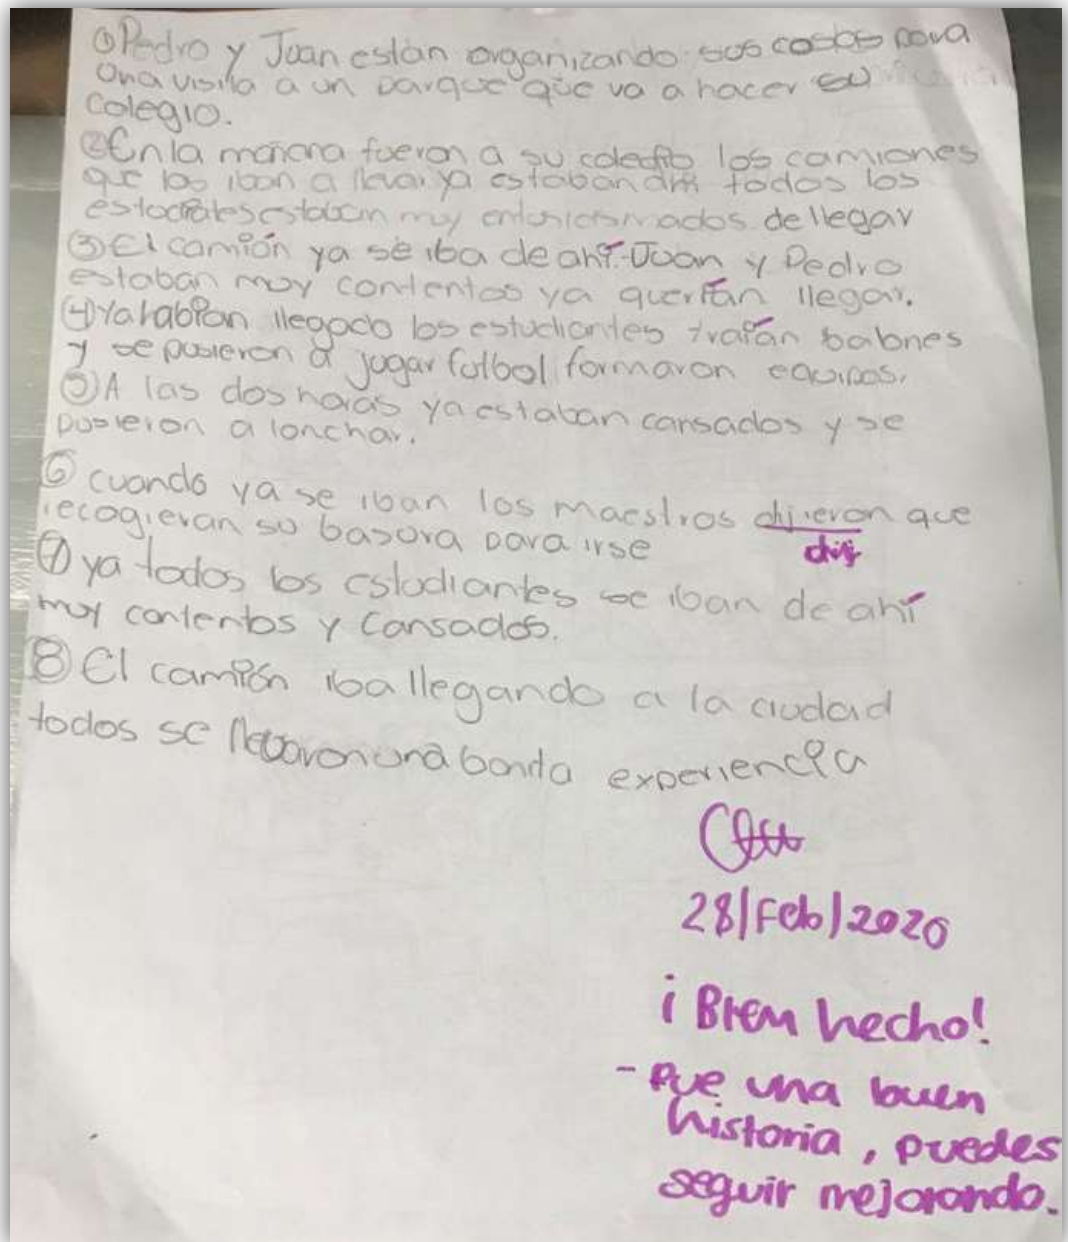 ① Pedro y Juan están organizando sus cosas para
una visita a un parque que va a hacer su
colegio.
② En la mañana fueron a su colegio los camiones
que los iban a llevar ya estaban ahí todos los
estaban muy entusiasmados de llegar
③ El camión ya se iba de ahí Juan y Pedro
estaban muy contentos ya querían llegar.
④ Ya habían llegado los estudiantes traían balones
y se pusieron a jugar futbol formaron equipos.
⑤ A las dos horas ya estaban cansados y se
pusieron a lonchar.
⑥ cuando ya se iban los maestros dijieron que
recogieran su basora para irse
dij
⑦ ya todos los estudiantes se iban de ahí
muy contentos y cansados.
⑧ El camión iba llegando a la ciudad
todos se llevaron una bonita experiencia
28/Feb/2020
¡Bien hecho!
- Fue una buen
historia, puedes
seguir mejorando.